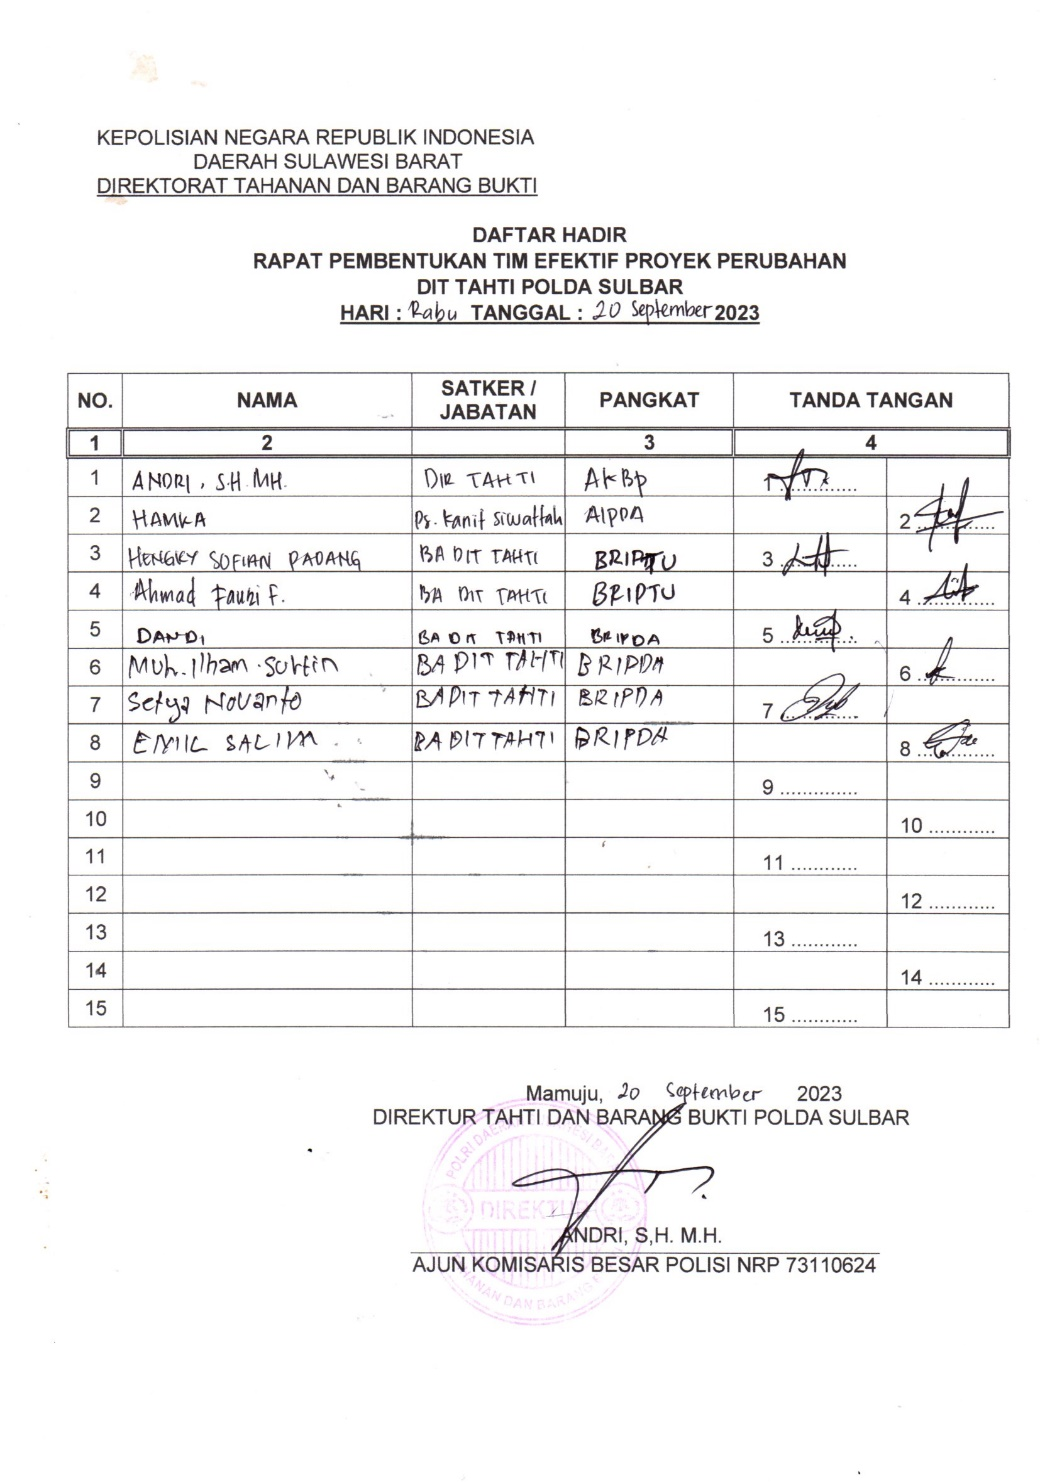 KEPOLISIAN NEGARA REPUBLIK INDONESIA
DAERAH SULAWESI BARAT
DIREKTORAT TAHANAN DAN BARANG BUKTI
DAFTAR HADIR
RAPAT PEMBENTUKAN TIM EFEKTIF PROYEK PERUBAHAN
DIT TAHTI POLDA SULBAR
HARI : Rabu TANGGAL : 20 September 2023
NO. NAMA SATKER / JABATAN PANGKAT TANDA TANGAN
1 2 3 4
1 ANDRI, S.H. MH. DIR TAHTI AKBP 1
2 HAMKA Ps. Kanit Siwattah AIPDA 2
3 HENGKY SOFIAN PADANG BA DIT TAHTI BRIPTU 3
4 Ahmad Fauzi F. BA DIT TAHTI BRIPTU 4
5 DANDI BA DIT TAHTI BRIPDA 5
6 Muh. Ilham BA DIT TAHTI BRIPDA 6
7 Setya Novanto BA DIT TAHTI BRIPDA 7
8 EMIL SALIM BA DIT TAHTI BRIPDA 8
9 9 ..............
10 10 ............
11 11 ............
12 12 ............
13 13 ............
14 14 ............
15 15 ............
Mamuju, 20 September 2023
DIREKTUR TAHTI DAN BARANG BUKTI POLDA SULBAR
DIREKTUR
ANDRI, S,H. M.H.
AJUN KOMISARIS BESAR POLISI NRP 73110624